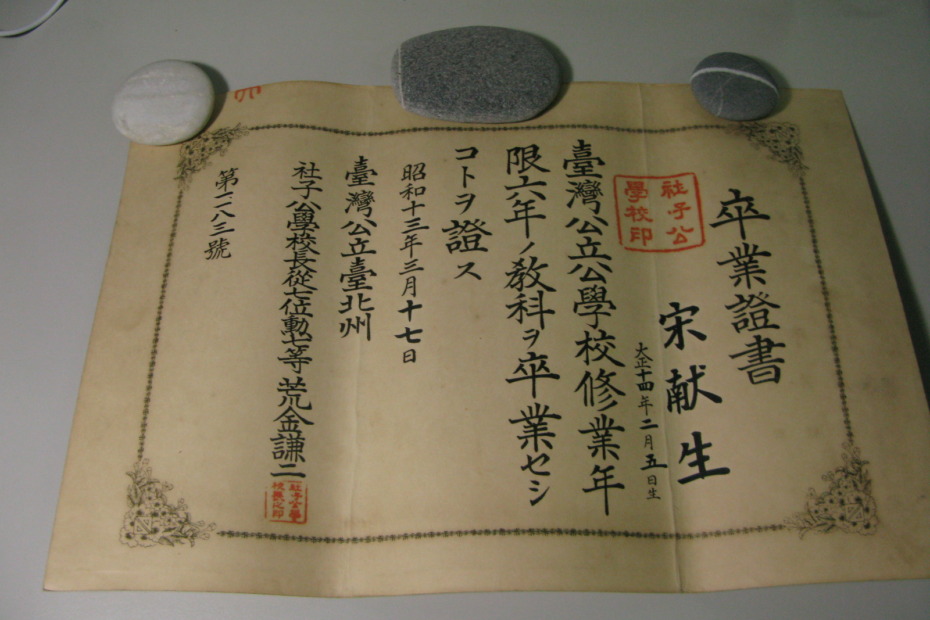 卒業證書
社子公
學校印
宋献生
大正十四年二月五日生
臺灣公立公學校修業年
限六年ノ教科ヲ卒業セシ
コトヲ證ス
昭和十三年三月十七日
臺灣公立臺北州
社子公學校長從七位勳七等荒金謙二
社子公學
校長之印
第一八三號